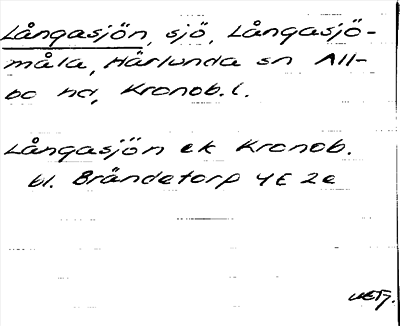 Långasjön, sjö, Långasjö-
måla, Härlunda sn All-
bo hd, Kronob.l.
Långasjön ek Kronob.
bl. Brändetorp 4E 2e